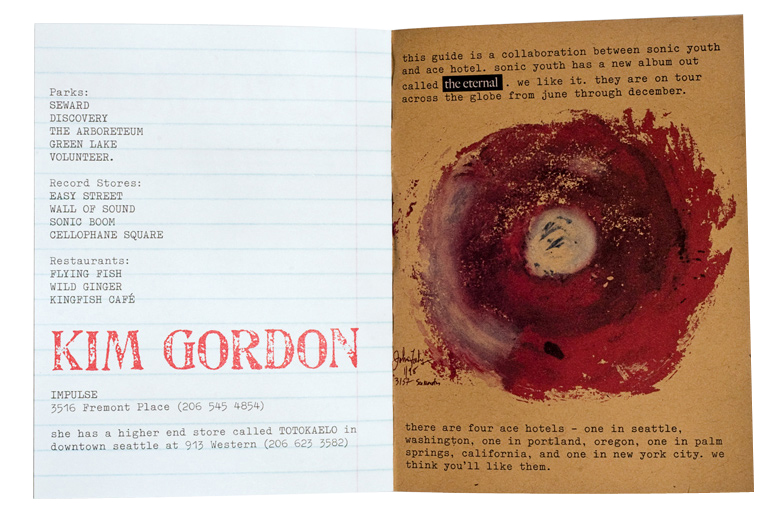 Parks:
SEWARD
DISCOVERY
THE ARBORETEUM
GREEN LAKE
VOLUNTEER.
Record Stores:
EASY STREET
WALL OF SOUND
SONIC BOOM
CELLOPHANE SQUARE
Restaurants:
FLYING FISH
WILD GINGER
KINGFISH CAFÉ
KIM GORDON
IMPULSE
3516 Fremont Place (206 545 4854)
she has a higher end store called TOTOKAELO in
downtown seattle at 913 Western (206 623 3582)
this guide is a collaboration between sonic youth
and ace hotel. sonic youth has a new album out
called the eternal . we like it. they are on tour
across the globe from june through december.
there are four ace hotels - one in seattle,
washington, one in portland, oregon, one in palm
springs, california, and one in new york city. we
think you'll like them.